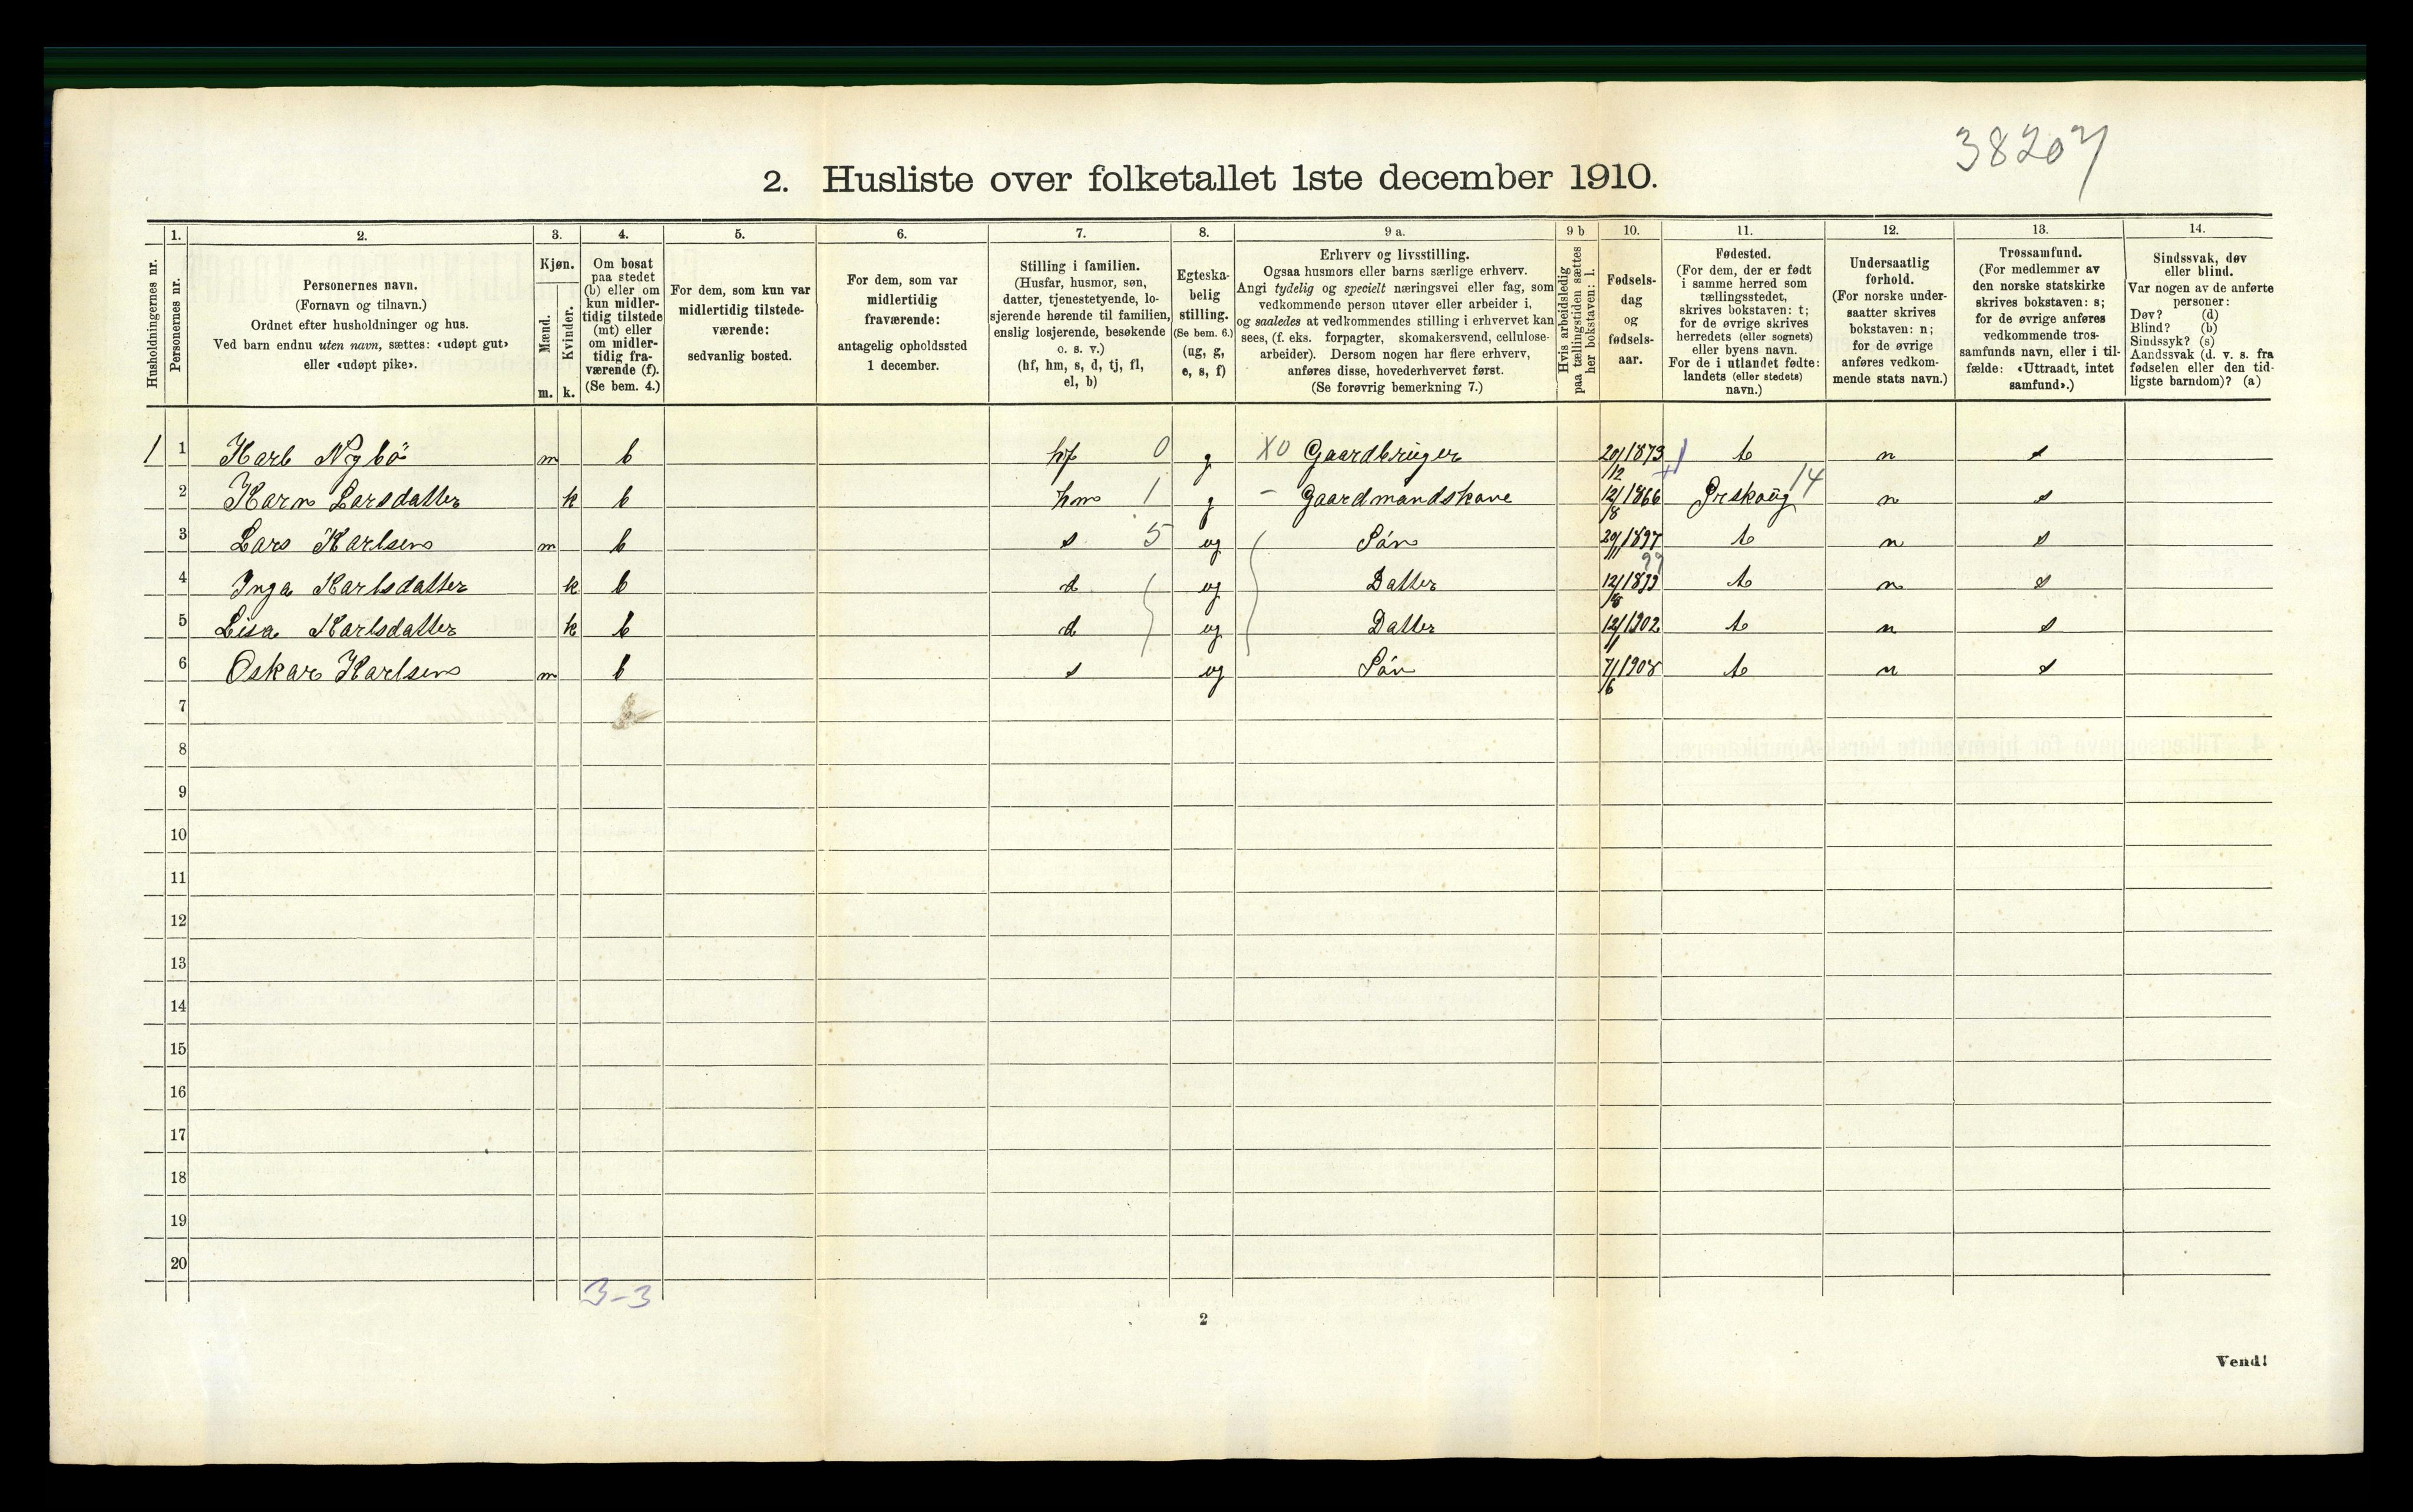 38207
2. Husliste over folketallet 1ste december 1910.
1. 2. 3. 4. 5. 6. 7. 8. 9 a. 9 b 10. 11. 12. 13. 14.
Husholdningernes nr.
Personernes nr.
Personernes navn.
(Fornavn og tilnavn.)
Ordnet efter husholdninger og hus.
Ved barn endnu uten navn, sættes: «udøpt gut»
eller «udøpt pike».
Kjøn.
Mænd.
Kvinder.
m. k.
Om bosat
paa stedet
(b) eller om
kun midler-
tidig tilstede
(mt) eller
om midler-
tidig fra-
værende (f).
(Se bem. 4.)
For dem, som kun var
midlertidig tilstede-
værende:
sedvanlig bosted.
For dem, som var
midlertidig
fraværende:
antagelig opholdssted
1 december.
Stilling i familien.
(Husfar, husmor, søn,
datter, tjenestetyende, lo-
sjerende hørende til familien,
enslig losjerende, besøkende
o. s. v.)
(hf, hm, s, d, tj, fl,
el, b)
Egteska-
belig
stilling.
(Se bem. 6.)
(ug, g,
e, s, f)
Erhverv og livsstilling.
Ogsaa husmors eller barns særlige erhverv.
Angi tydelig og specielt næringsvei eller fag, som
vedkommende person utøver eller arbeider i,
og saaledes at vedkommendes stilling i erhvervet kan
sees, (f. eks. forpagter, skomakersvend, cellulose-
arbeider). Dersom nogen har flere erhverv,
anføres disse, hovederhvervet først.
(Se forøvrig bemerkning 7.)
Hvis arbeidsledig
paa tællingstiden sættes
her bokstaven: l.
Fødsels-
dag
og
fødsels-
aar.
Fødested.
(For dem, der er født
i samme herred som
tællingsstedet,
skrives bokstaven: t;
for de øvrige skrives
herredets (eller sognets)
eller byens navn.
For de i utlandet fødte:
landets (eller stedets)
navn.)
Undersaatlig
forhold.
(For norske under-
saatter skrives
bokstaven: n;
for de øvrige
anføres vedkom-
mende stats navn.)
Trossamfund.
(For medlemmer av
den norske statskirke
skrives bokstaven: s;
for de øvrige anføres
vedkommende tros-
samfunds navn, eller i til-
fælde: «Uttraadt, intet
samfund».)
Sindssvak, døv
eller blind.
Var nogen av de anførte
personer:
Døv? (d)
Blind? (b)
Sindssyk? (s)
Aandssvak (d. v. s. fra
fødselen eller den tid-
ligste barndom)? (a)
1 1 Karl Nybö m b hf 0 g X0 Gaardbruger 20/12 1873 t n s
2 Karn Larsdatter k b hm 1 g - Gaardmandskone 12/8 1866 Ørskoug 14 n s
3 Lars Karlsen m b s 5 ug Sön 29/11 1897 t n s
4 Inga Karlsdatter k b d ug Datter 12/8 1899 99 t n s
5 Lisa Karlsdatter k b d ug Datter 12/1 1902 t n s
6 Oskar Karlsen m b s ug Sön 7/6 1908 t n s
7
8
9
10
11
12
13
14
15
16
17
18
19
20
3-3
2
Vend!